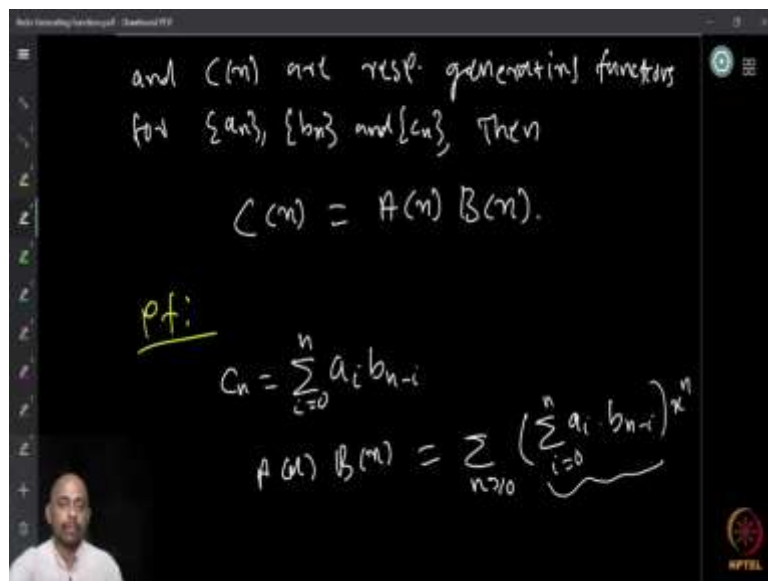 and C(x) are resp. generating functions
for {an}, {bn} and {cn}, Then
C(x) = A(x) B(x).
Pf:
cn = ∑_{i=0}^{n} ai bn-i
A(x) B(x) = ∑_{n≥0} (∑_{i=0}^{n} ai · bn-i) x^n
NPTEL